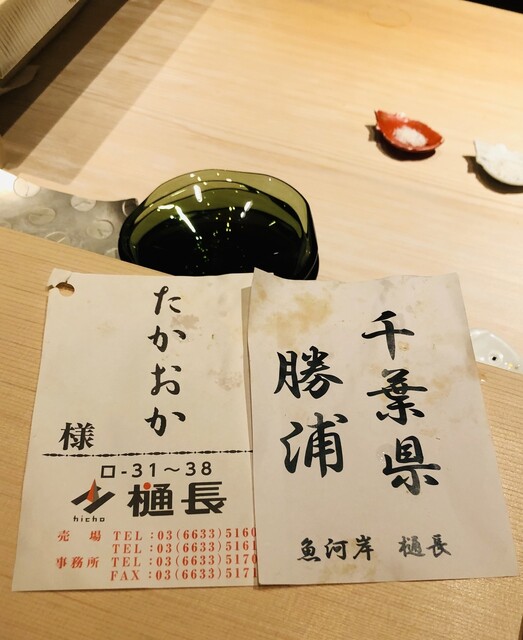 たかおか
様
ロ-31～38
hicho
樋長
売場 TEL：03(6633)5160
TEL：03(6633)5161
事務所 TEL：03(6633)5170
FAX：03(6633)5171
千葉県
勝浦
魚河岸 樋長